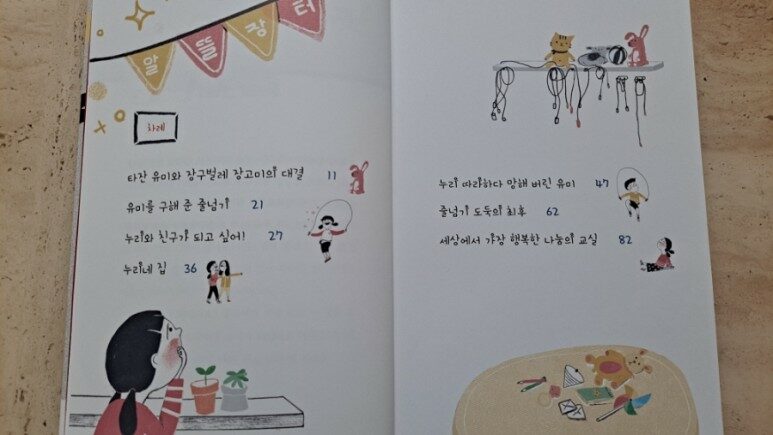 알뜰장터
차례
타잔 유미와 장구벌레 장고미의 대결 11
유미를 구해 준 줄넘기 21
누리와 친구가 되고 싶어! 27
누리네 집 36
누리 따라하다 망해 버린 유미 47
줄넘기 도둑의 최후 62
세상에서 가장 행복한 나눔의 교실 82